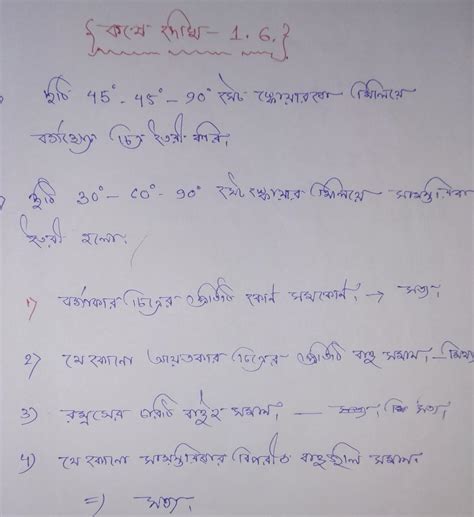 {কষে দেখি - 1.6.}
দুটি 45° - 45° - 90° সেট স্কোয়ারকে মিলিয়ে
বর্গক্ষেত্র চিত্র তৈরী করি।
দুটি 30° - 60° - 90° সেট স্কোয়ার মিলিয়ে সামন্তরিক
তৈরী হলো।
1) বর্গাকার চিত্রের প্রতিটি কোণ সমকোণ। → সত্য।
2) যে কোনো আয়তকার চিত্রের প্রতিটি বাহু সমান। - মিথ্যা
3) রম্বসের চারটি বাহুই সমান। — সত্য।
4) যে কোনো সামন্তরিকার বিপরীত বাহুগুলি সমান।
=) সত্য।